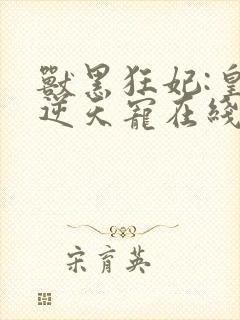 獸黑狂妃:皇
逆天寵在綫
宋育英